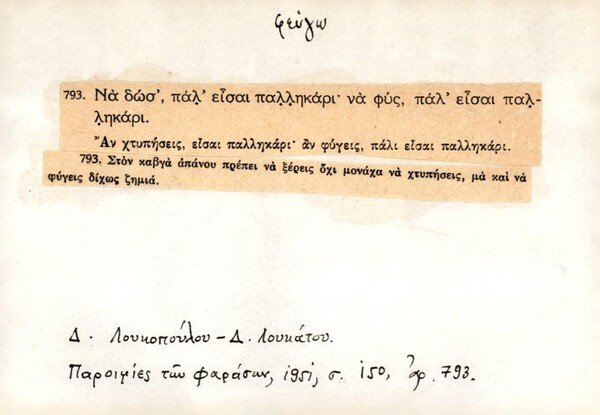 φεύγω
793. Νὰ δώσ', πάλ̣' εἶσαι παλ̣λ̣ηκάρι· νὰ φύς, πάλ' εἶσαι παλ̣-
λ̣ηκάρι.
Ἂν χτυπήσεις, εἶσαι παλληκάρι· ἂν φύγεις, πάλι εἶσαι παλληκάρι.
793. Στὸν καβγὰ ἀπάνου πρέπει νὰ ξέρεις ὄχι μονάχα νὰ χτυπήσεις, μὰ καὶ νὰ
φύγεις δίχως ζημιά.
Δ. Λουκοπούλου – Δ. Λουκάτου.
Παροιμίες τῶν Φαράσων, 1951, σ. 150, ἀρ. 793.